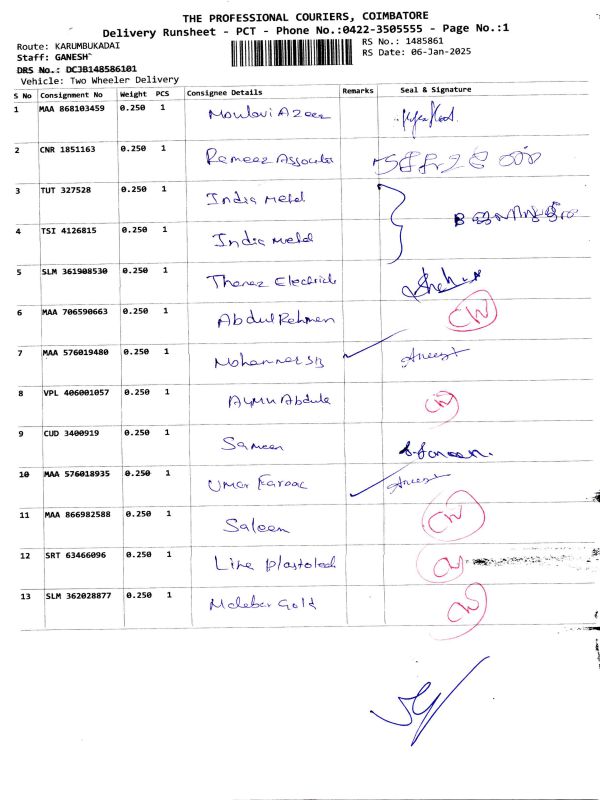 THE PROFESSIONAL COURIERS, COIMBATORE
Delivery Runsheet - PCT - Phone No.:0422-3505555 - Page No.:1
Route: KARUMBUKADAI
RS No.: 1485861
Staff: GANESH
RS Date: 06-Jan-2025
DRS No.: DCJB148586101
Vehicle: Two Wheeler Delivery
S No Consignment No Weight PCS Consignee Details Remarks Seal & Signature
1 MAA 868103459 0.250 1 Moulavi Azeez
2 CNR 1851163 0.250 1 Rameez Associates
3 TUT 327528 0.250 1 India Metal
4 TSI 4126815 0.250 1 India Metal
5 SLM 361908530 0.250 1 Electricals
6 MAA 706590663 0.250 1 Abdul Rehman CW
7 MAA 576019480 0.250 1
8 VPL 406001057 0.250 1 CW
9 CUD 3400919 0.250 1 Sameen
10 MAA 576018935 0.250 1 Umar Farooc
11 MAA 866982588 0.250 1 Saleem CW
12 SRT 63466096 0.250 1 Line CW
13 SLM 362028877 0.250 1 Maleber Gold CW